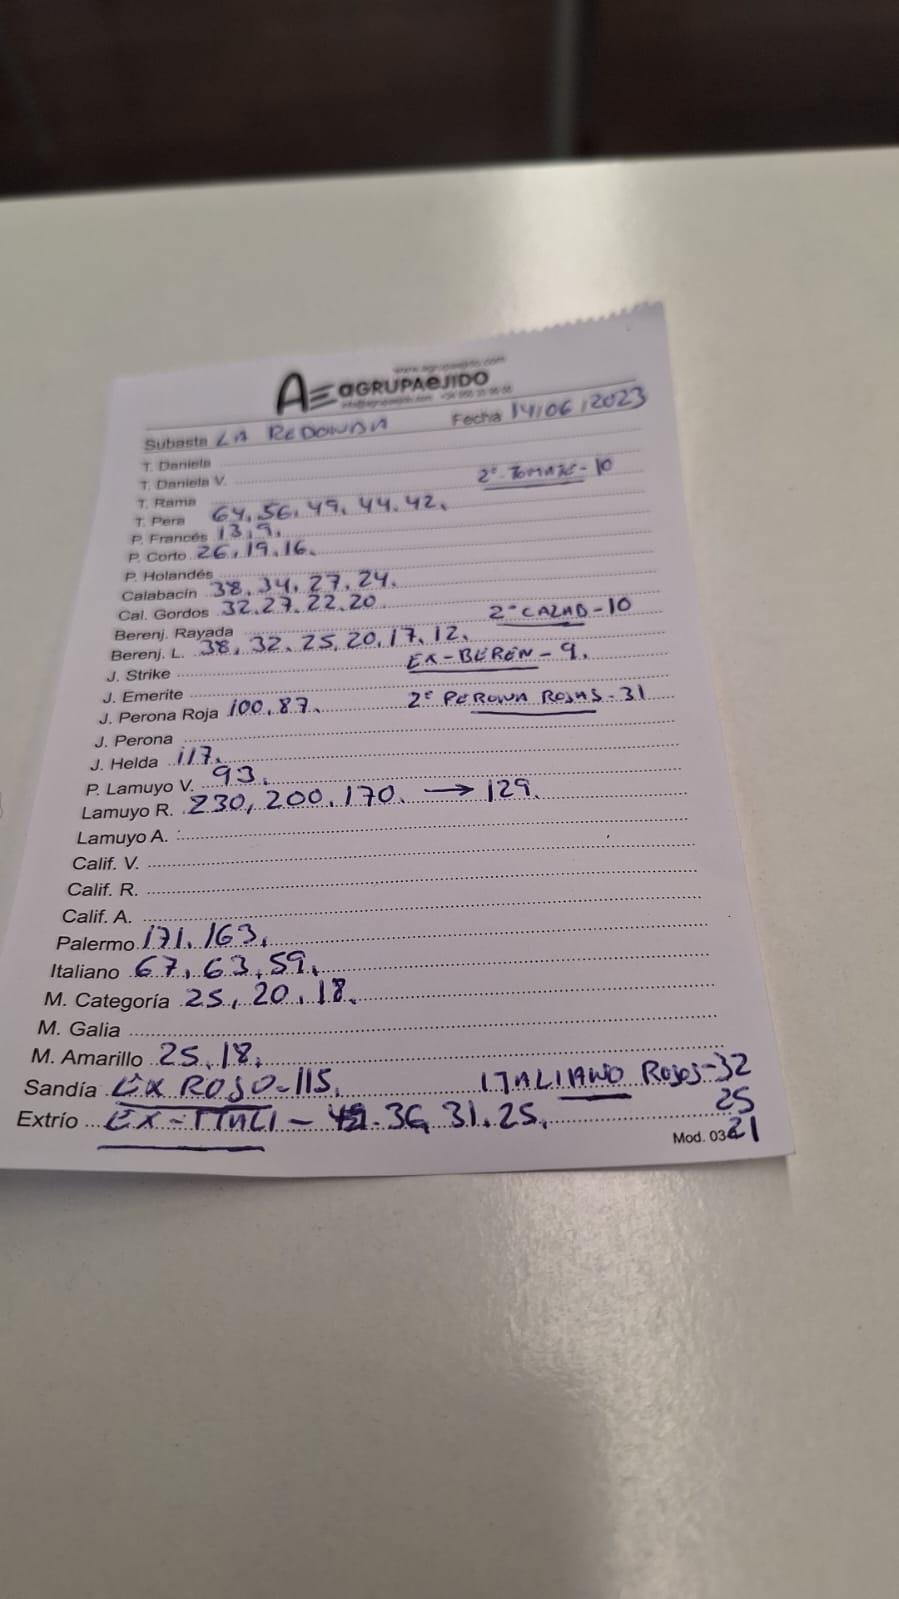 www.agrupaejido.com
AE aGRUPAeJIDO
Subasta LA REDONDA Fecha 14/06/2023
T. Daniela
T. Daniela V.
2ª TOMATE - 10
T. Rama
T. Pera 64, 56, 49, 44, 42.
P. Francés 13, 9.
P. Corto 26, 19, 16.
P. Holandés
Calabacín 38, 34, 27, 24.
Cal. Gordos 32, 27, 22, 20
Berenj. Rayada 2ª CALAB - 10
Berenj. L. 38, 32, 25, 20, 17, 12.
J. Strike EX - BEREN - 9.
J. Emerite
J. Perona Roja 100, 87. 2ª PERONA ROJAS - 31
J. Perona
J. Helda 117.
P. Lamuyo V. 93.
Lamuyo R. 230, 200, 170. → 129.
Lamuyo A.
Calif. V.
Calif. R.
Calif. A.
Palermo 171, 163.
Italiano 67, 63, 59.
M. Categoría 25, 20, 18.
M. Galia
M. Amarillo 25, 18.
Sandía EX ROJO - 115. ITALIANO Rojos - 32
25
Extrío EX - ITALI - 36, 31, 25.
Mod. 03 21